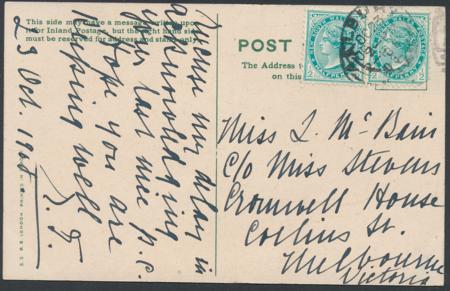 This side may have a message written upon
it for Inland Postage, but the right hand side
must be reserved for address and stamp only.
POST
The Address to
on this
NEW SOUTH WALES POSTAGE
HALFPENNY
Excuse my delay in
acknowledging
your last nice p.c.
Hope you are
keeping well
23 Oct. 1905
Miss L. McBain
C/o Miss Stevens
Cromwell House
Collins St.
Melbourne
Victoria